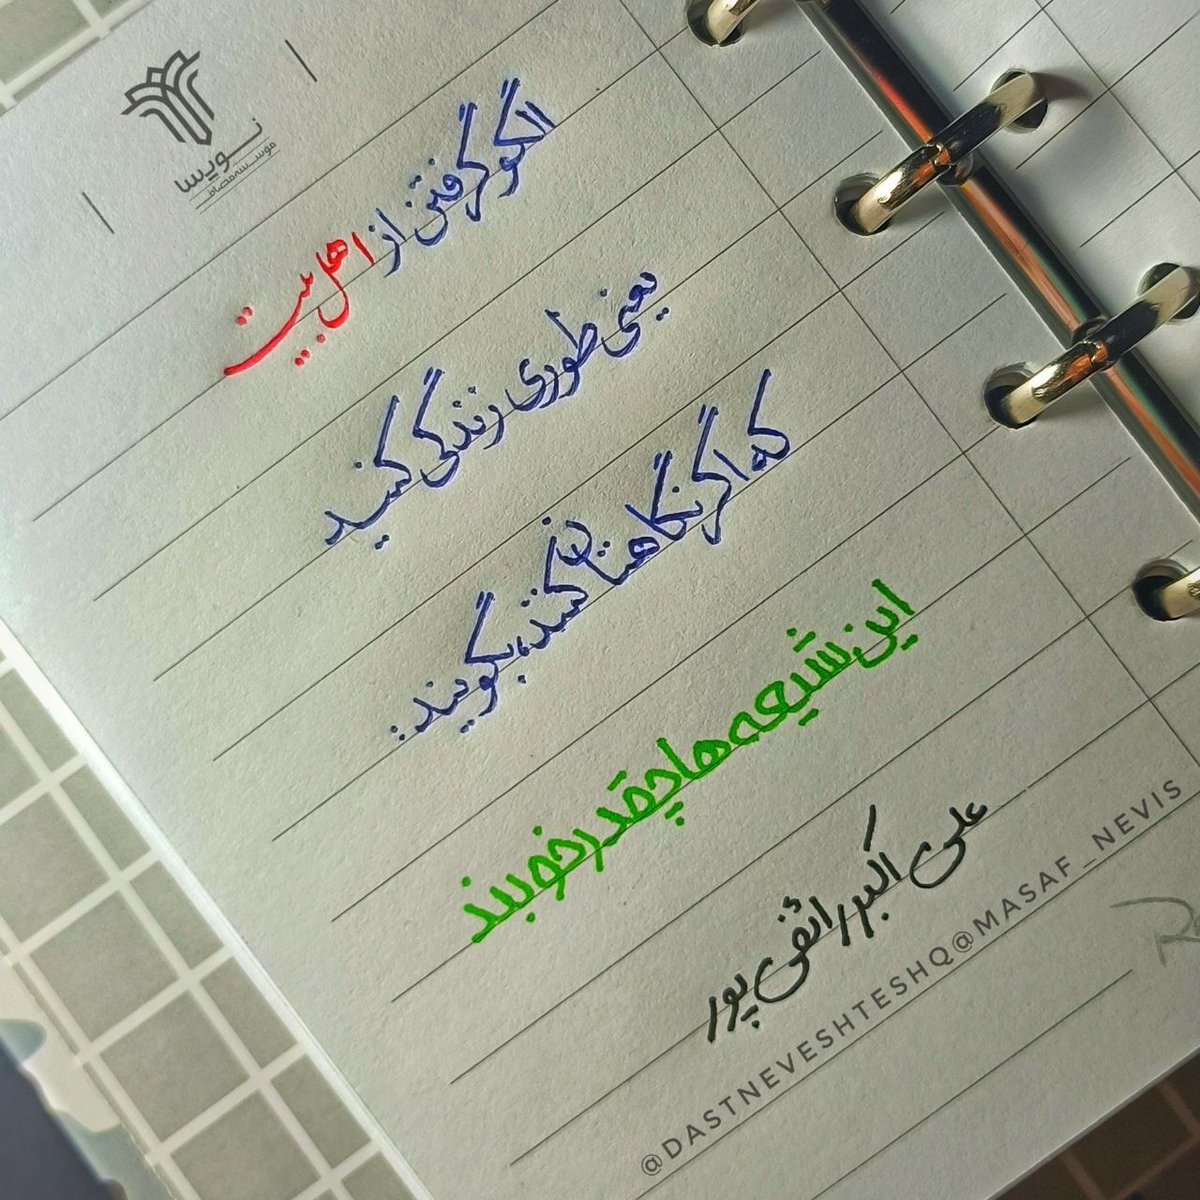 نویسا
مؤسسه مصاف
الگو گرفتن از اهل بیت
یعنی طوری زندگی کنید
که اگر نگاهتان کنند، بگویند:
این شیعه ها چقدر خوبند
علی اکبر رائفی پور
@DASTNEVESHTESHQ@MASAF_NEVIS